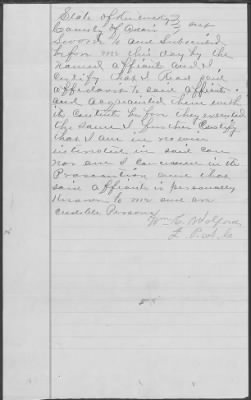 State of Kentucky
County of Adair } SS
Sworn to and Subscribed
before me this day by the
named affiants and I
certify that I Read said
affidavit to said affiants
and acquainted them with
its contents before they executed
the same I further Certify
that I am in no wise
interested in said case
nor am I concerned in the
Prosecution and that
said affiants is personally
known to me and are
credible Persons
Wm